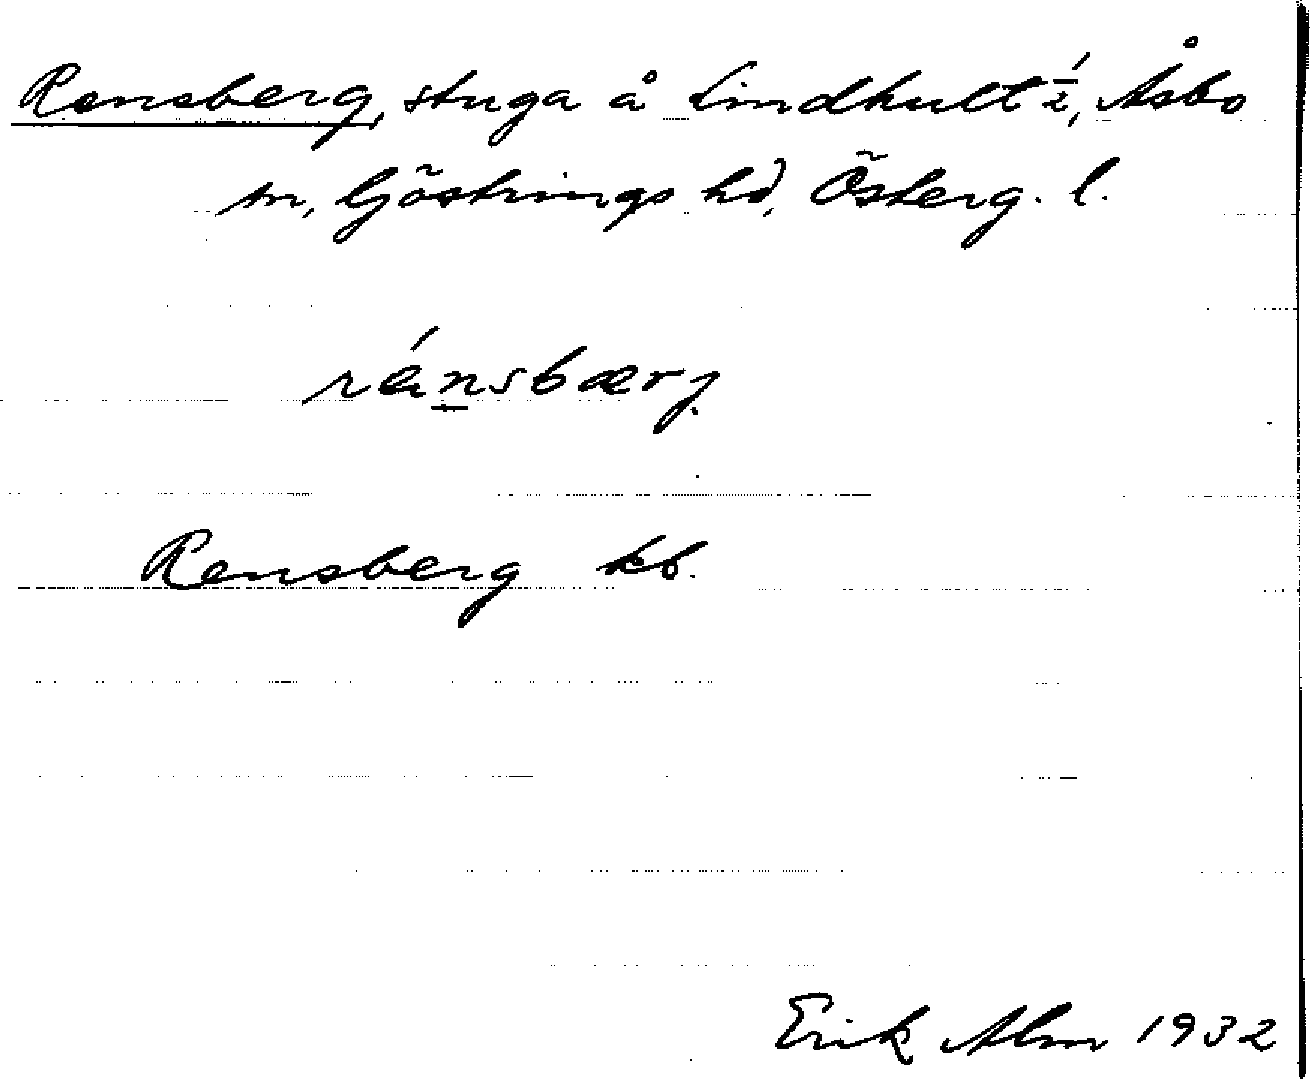 Rensberg, stuga å Lindhult 1/2, Åsbo
sn, Göstrings hd, Österg. l.
rénsbærj
Rensberg kb.
Erik Alm 1932